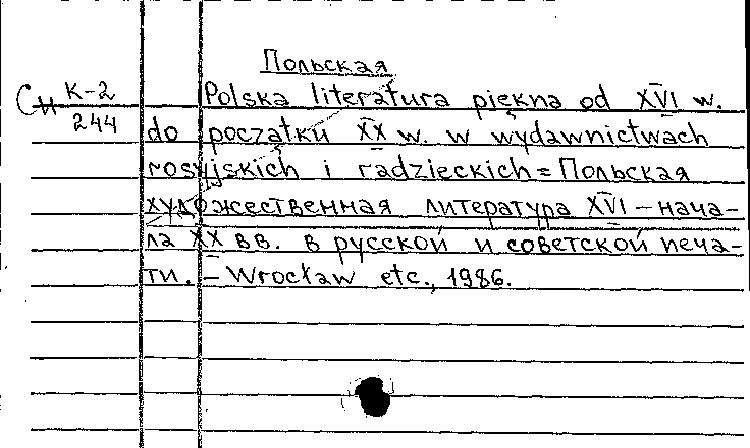 Польская
Си К-2
244
Polska literatura piękna od XVI w.
do początku XX w. w wydawnictwach
rosyjskich i radzieckich = Польская
художественная литература XVI – нача-
ла XX вв. в русской и советской печа-
ти. – Wrocław etc., 1986.